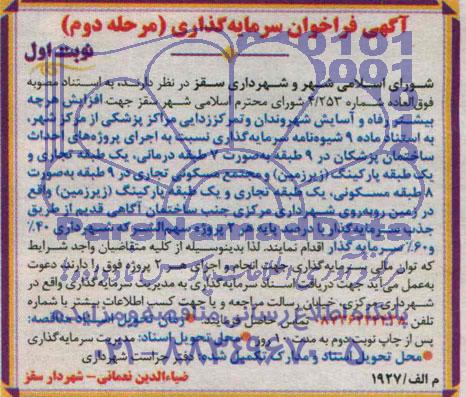 آگهی فراخوان سرمایه‌گذاری (مرحله دوم)
نوبت اول
شورای اسلامی شهر و شهرداری سقز در نظر دارند، به استناد مصوبه
فوق‌العاده شماره ۴/۲۵۳ شورای محترم اسلامی شهر سقز جهت افزایش هرچه
بیشتر رفاه و آسایش شهروندان و تمرکززدایی مراکز پزشکی از مرکز شهر،
به استناد ماده ۹ شیوه‌نامه سرمایه‌گذاری نسبت به اجرای پروژه‌های احداث
ساختمان پزشکان در ۹ طبقه به‌صورت ۷ طبقه درمانی، یک طبقه تجاری و
یک طبقه پارکینگ (زیرزمین) و مجتمع مسکونی تجاری در ۹ طبقه به‌صورت
۸ طبقه مسکونی، یک طبقه تجاری و یک طبقه پارکینگ (زیرزمین) واقع
در زمین روبه‌روی شهرداری مرکزی جنب ساختمان آگاهی قدیم از طریق
جذب سرمایه‌گذار با درصد پایه هر ۲ پروژه سهم‌الشرکه شهرداری ۴۰٪
و ۶۰٪ سرمایه گذار اقدام نمایند. لذا بدینوسیله از کلیه متقاضیان واجد شرایط
که توان مالی سرمایه‌گذاری جهت انجام و اجرای هر ۲ پروژه فوق را دارند، دعوت
به‌عمل می‌آید جهت دریافت اسناد سرمایه‌گذاری به مدیریت سرمایه‌گذاری واقع در
شهرداری مرکزی، خیابان رسالت مراجعه و یا جهت کسب اطلاعات بیشتر با شماره
تلفن تماس حاصل فرمایند. زمان تحویل اسناد مناقصه:
پس از چاپ نوبت دوم به مدت ۱۰ روز • محل تحویل اسناد: مدیریت سرمایه‌گذاری
• محل تحویل اسناد و مدارک تکمیل شده: دفتر حراست شهرداری
م الف/۱۹۲۷
ضیاءالدین نعمانی – شهردار سقز